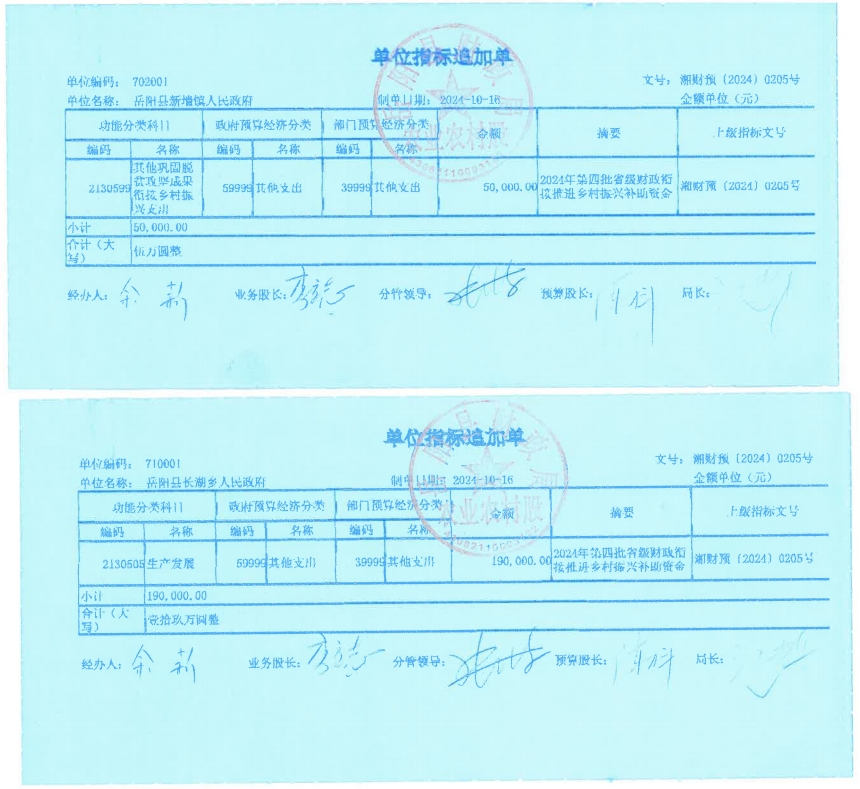 单位指标追加单
单位编码： 702001 文号： 湘财预（2024）0205号
单位名称： 岳阳县新墙镇人民政府 制单日期： 2024-10-16 金额单位（元）
功能分类科目 政府预算经济分类 部门预算经济分类 金额 摘要 上级指标文号
编码 名称 编码 名称 编码 名称
2130599 其他巩固脱贫攻坚成果衔接乡村振兴支出 59999 其他支出 39999 其他支出 50,000.00 2024年第四批省级财政衔接推进乡村振兴补助资金 湘财预（2024）0205号
小计 50,000.00
合计（大写） 伍万圆整
经办人： 余新 业务股长： 分管领导： 预算股长： 局长：
农业农村股
单位指标追加单
单位编码： 710001 文号： 湘财预（2024）0205号
单位名称： 岳阳县长湖乡人民政府 制单日期： 2024-10-16 金额单位（元）
功能分类科目 政府预算经济分类 部门预算经济分类 金额 摘要 上级指标文号
编码 名称 编码 名称 编码 名称
2130505 生产发展 59999 其他支出 39999 其他支出 190,000.00 2024年第四批省级财政衔接推进乡村振兴补助资金 湘财预（2024）0205号
小计 190,000.00
合计（大写） 壹拾玖万圆整
经办人： 余新 业务股长： 分管领导： 预算股长： 局长：
农业农村股